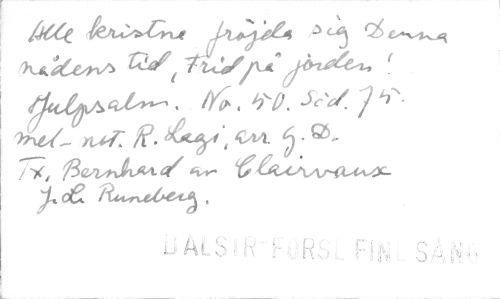 Alle kristne fröjda sig Denna
nådens tid, Frid på jorden!
Julpsalm. No. 50. Sid. 75.
mel-not. R. Lagi, arr. G. D.
Tx. Bernhard av Clairvaux
J. L. Runeberg.
DALSTR-FÖRSL FINL SÅNG